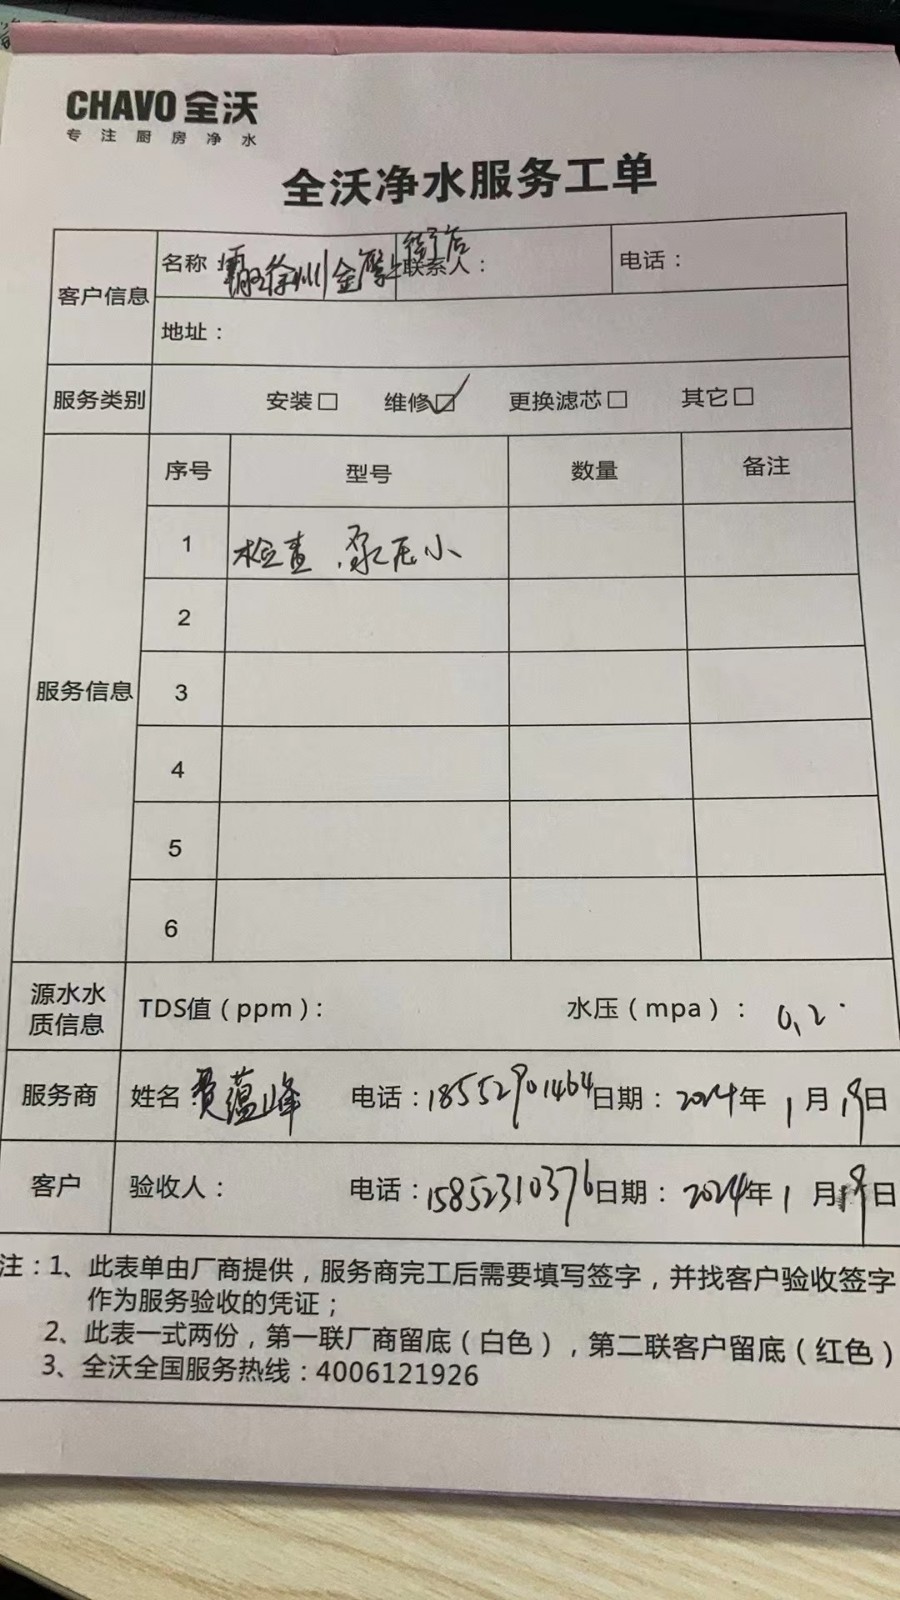 CHAVO 全沃
专注厨房净水
全沃净水服务工单
客户信息
名称 徐州金鹰 街店
联系人：
电话：
地址：
服务类别 安装□ 维修☑ 更换滤芯□ 其它□
服务信息
序号 型号 数量 备注
1 检查 泵压小
2
3
4
5
6
源水水质信息 TDS值（ppm）： 水压（mpa）： 0.2
服务商 姓名 蕴峰 电话：18552901464 日期：2024年1月19日
客户 验收人： 电话：15852310376 日期：2024年1月19日
注：1、此表单由厂商提供，服务商完工后需要填写签字，并找客户验收签字
作为服务验收的凭证；
2、此表一式两份，第一联厂商留底（白色），第二联客户留底（红色）
3、全沃全国服务热线：4006121926